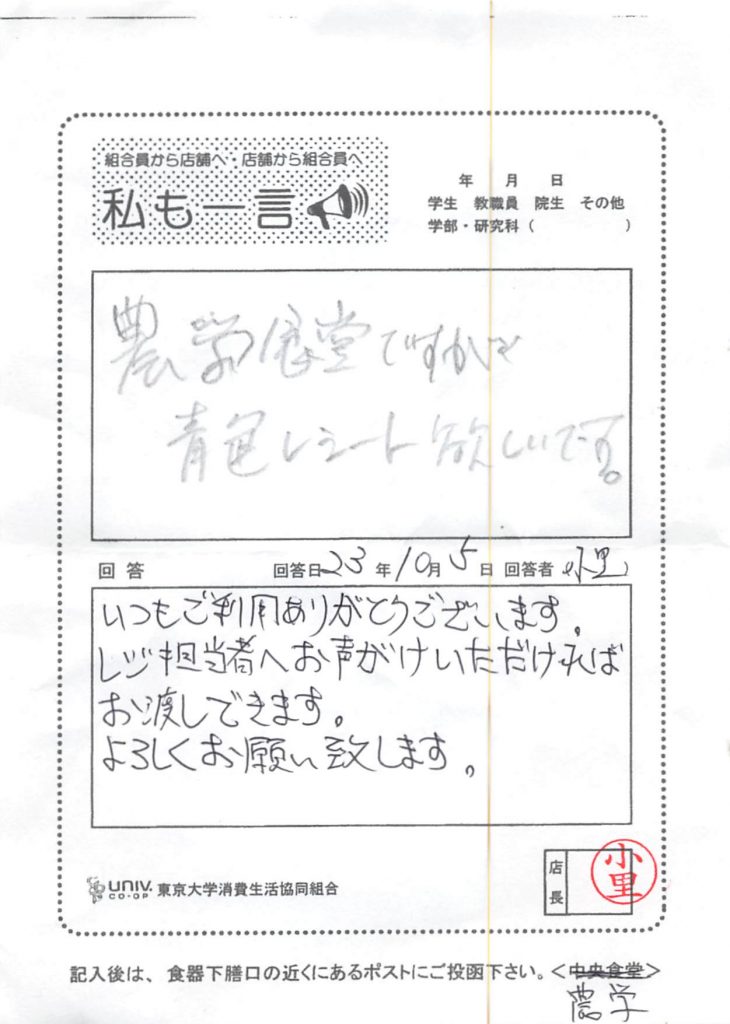 組合員から店舗へ・店舗から組合員へ
私も一言
年 月 日
学生 教職員 院生 その他
学部・研究科( )
農学食堂ですが
青色レシート欲しいです。
回答 回答日23年10月5日 回答者 小里
いつもご利用ありがとうございます。
レジ担当者へお声がけいただければ
お渡しできます。
よろしくお願い致します。
UNIV. CO-OP 東京大学消費生活協同組合
店長
小里
記入後は、食器下膳口の近くにあるポストにご投函下さい。<中央食堂>
農学